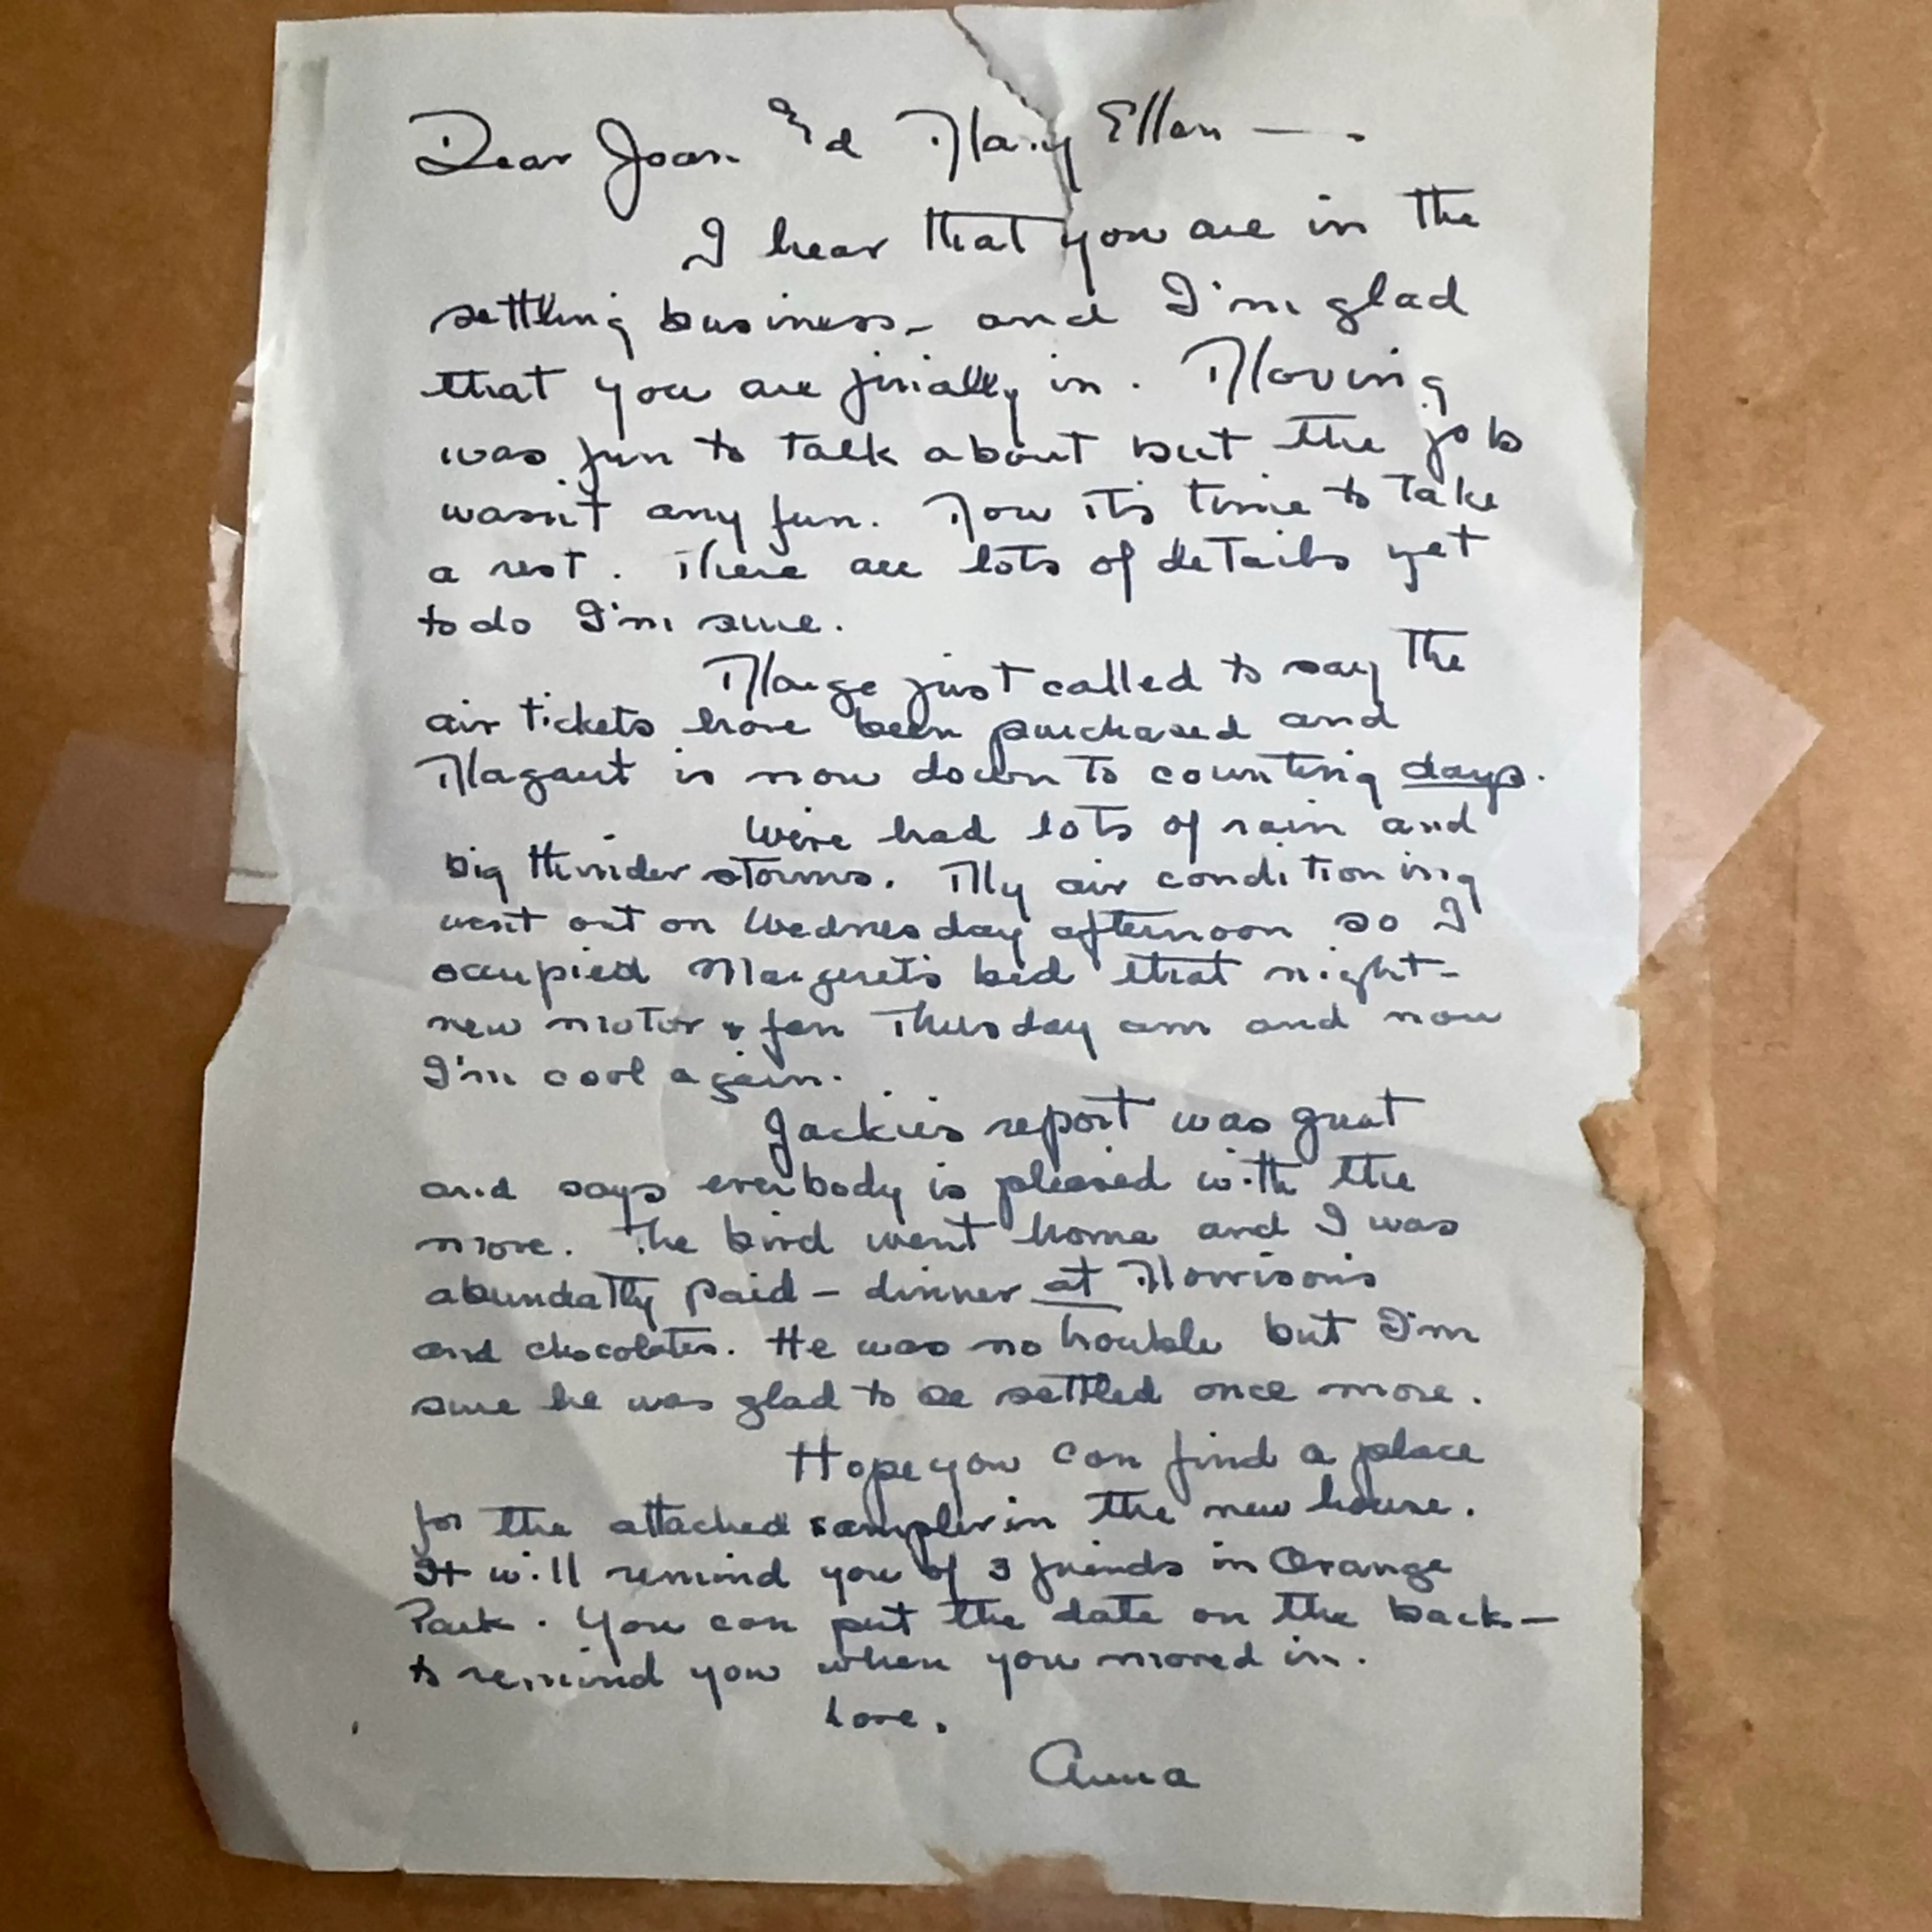 Dear Joan & Ed Mary Ellen — .
I hear that you are in the
settling business - and I'm glad
that you are finially in. Moving
was fun to talk about but the job
wasn't any fun. Now it's time to take
a rest. There are lots of details yet
to do I'm sure.
Marge just called to say the
air tickets have been purchased and
Magaret is now down to counting days.
We've had lots of rain and
big thunder storms. My air conditioning
went out on Wednesday afternoon so I
occupied Margeret's bed that night -
new motor & fan Thusday am and now
I'm cool again.
Jackie's report was great
and says everbody is pleased with the
move. The bird went home and I was
abundatly paid - dinner at Morrison's
and chocolates. He was no trouble but I'm
sure he was glad to be settled once more.
Hope you can find a place
for the attached sampler in the new house.
It will remind you of 3 friends in Orange
Park. You can put the date on the back -
to remind you when you moved in.
Love,
Anna